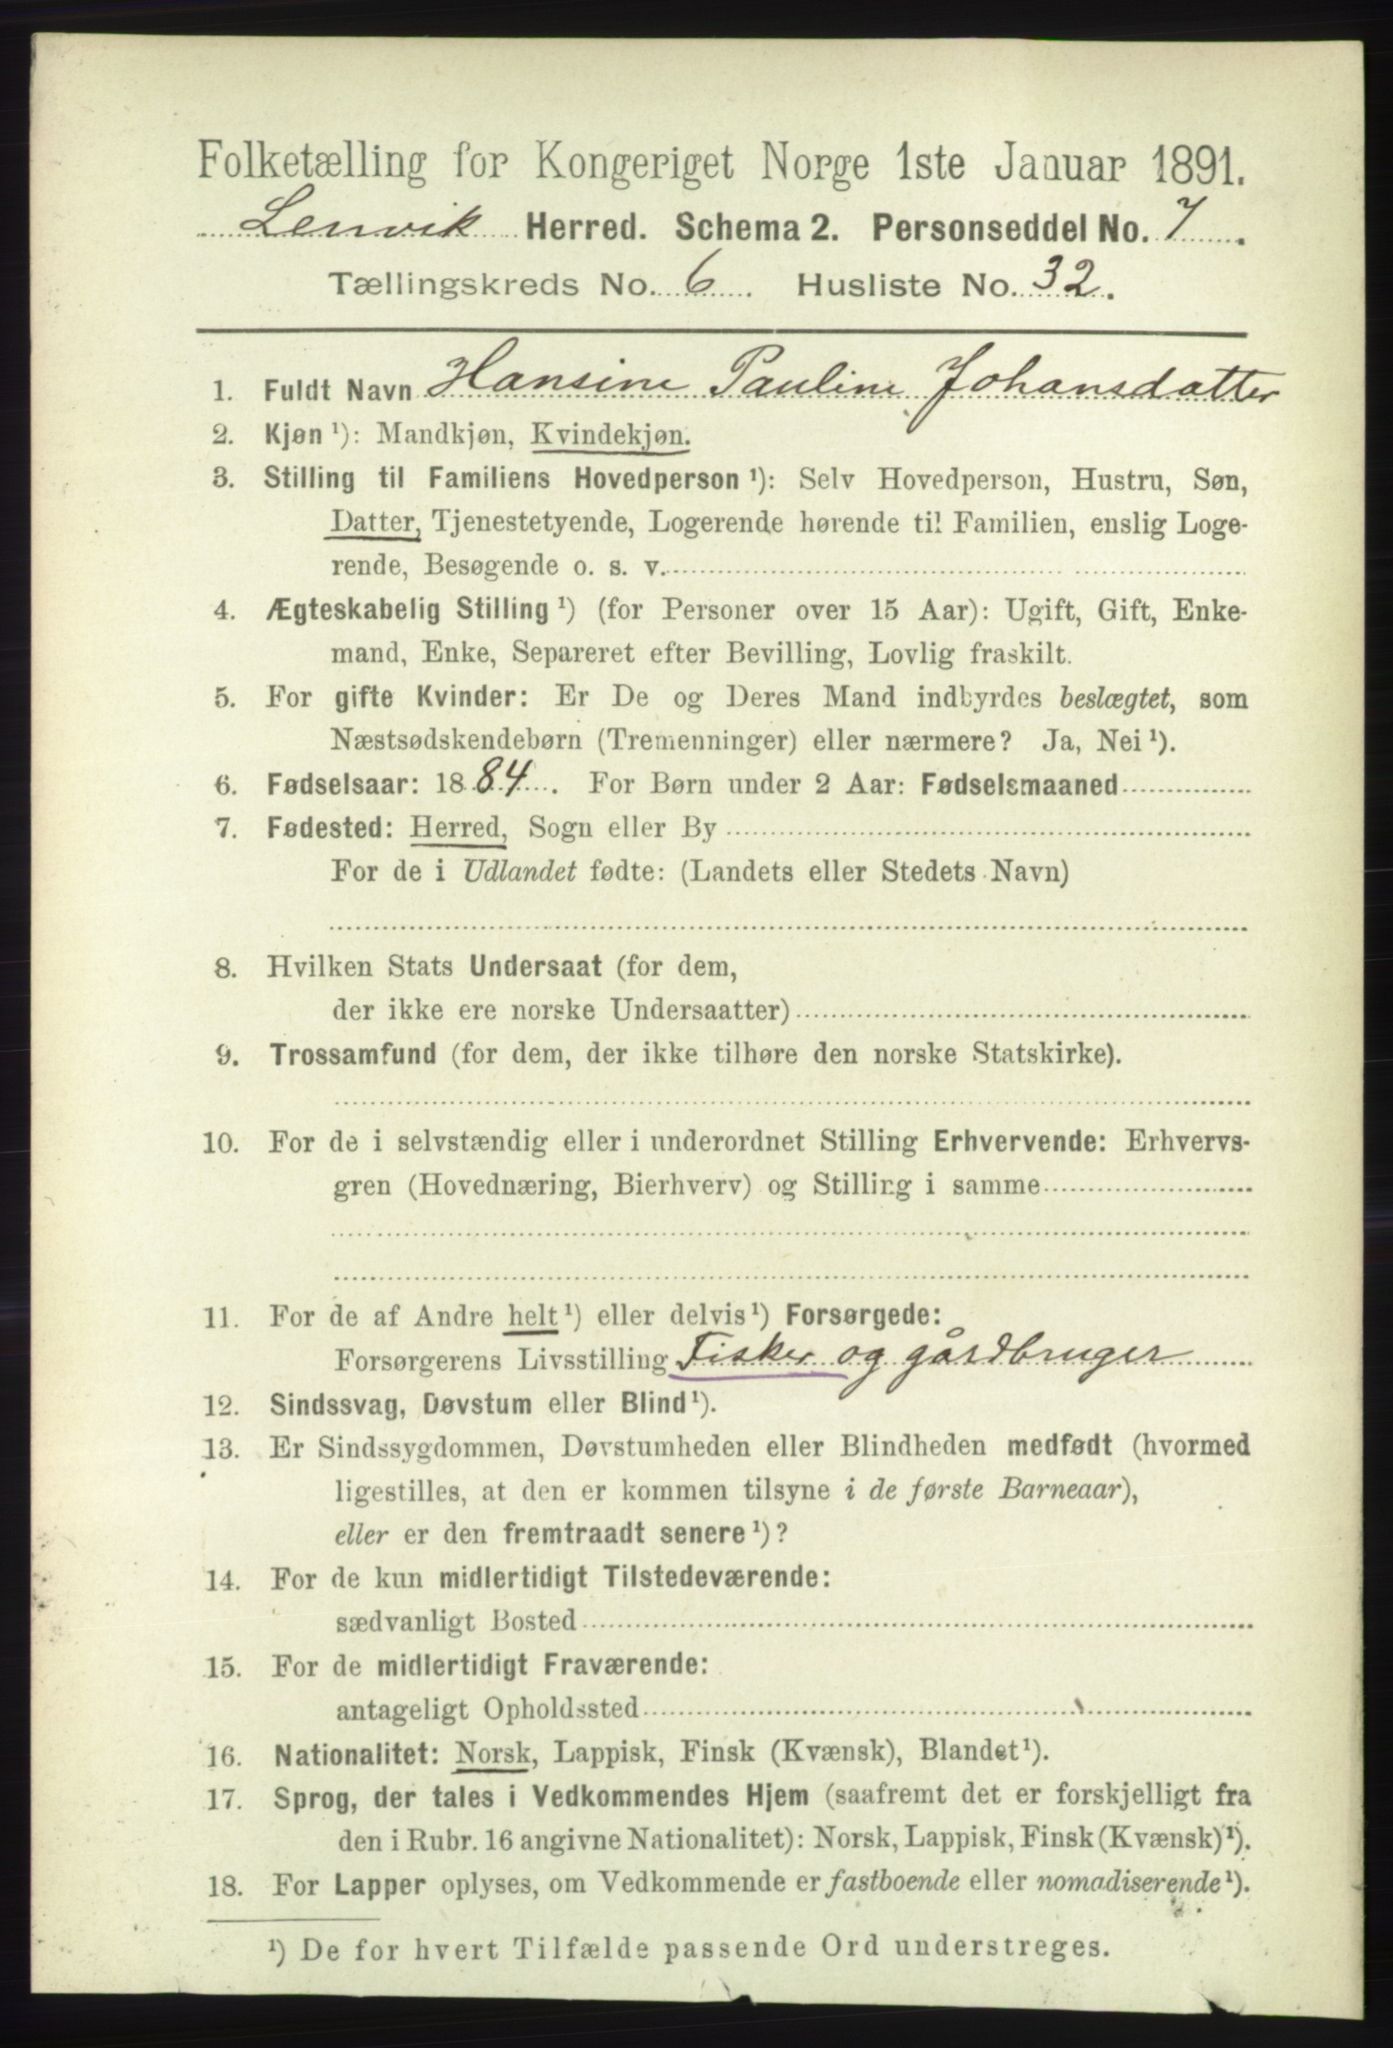 Folketælling for Kongeriget Norge 1ste Januar 1891.
Lenvik Herred. Schema 2. Personseddel No. 7.
Tællingskreds No. 6. Husliste No. 32.
1. Fuldt Navn Hansine Pauline Johansdatter
2. Kjøn ¹): Mandkjøn, Kvindekjøn.
3. Stilling til Familiens Hovedperson ¹): Selv Hovedperson, Hustru, Søn,
Datter, Tjenestetyende, Logerende hørende til Familien, enslig Loge-
rende, Besøgende o. s. v.
4. Ægteskabelig Stilling ¹) (for Personer over 15 Aar): Ugift, Gift, Enke-
mand, Enke, Separeret efter Bevilling, Lovlig fraskilt.
5. For gifte Kvinder: Er De og Deres Mand indbyrdes beslægtet, som
Næstsødskendebørn (Tremenninger) eller nærmere? Ja, Nei ¹).
6. Fødselsaar: 1884. For Børn under 2 Aar: Fødselsmaaned
7. Fødested: Herred, Sogn eller By
For de i Udlandet fødte: (Landets eller Stedets Navn)
8. Hvilken Stats Undersaat (for dem,
der ikke ere norske Undersaatter)
9. Trossamfund (for dem, der ikke tilhøre den norske Statskirke).
10. For de i selvstændig eller i underordnet Stilling Erhvervende: Erhvervs-
gren (Hovednæring, Bierhverv) og Stilling i samme
11. For de af Andre helt ¹) eller delvis ¹) Forsørgede:
Forsørgerens Livsstilling Fisker og gårdbruger
12. Sindssvag, Døvstum eller Blind ¹).
13. Er Sindssygdommen, Døvstumheden eller Blindheden medfødt (hvormed
ligestilles, at den er kommen tilsyne i de første Barneaar),
eller er den fremtraadt senere ¹)?
14. For de kun midlertidigt Tilstedeværende:
sædvanligt Bosted
15. For de midlertidigt Fraværende:
antageligt Opholdssted
16. Nationalitet: Norsk, Lappisk, Finsk (Kvænsk), Blandet ¹).
17. Sprog, der tales i Vedkommendes Hjem (saafremt det er forskjelligt fra
den i Rubr. 16 angivne Nationalitet): Norsk, Lappisk, Finsk (Kvænsk) ¹).
18. For Lapper oplyses, om Vedkommende er fastboende eller nomadiserende ¹).
¹) De for hvert Tilfælde passende Ord understreges.